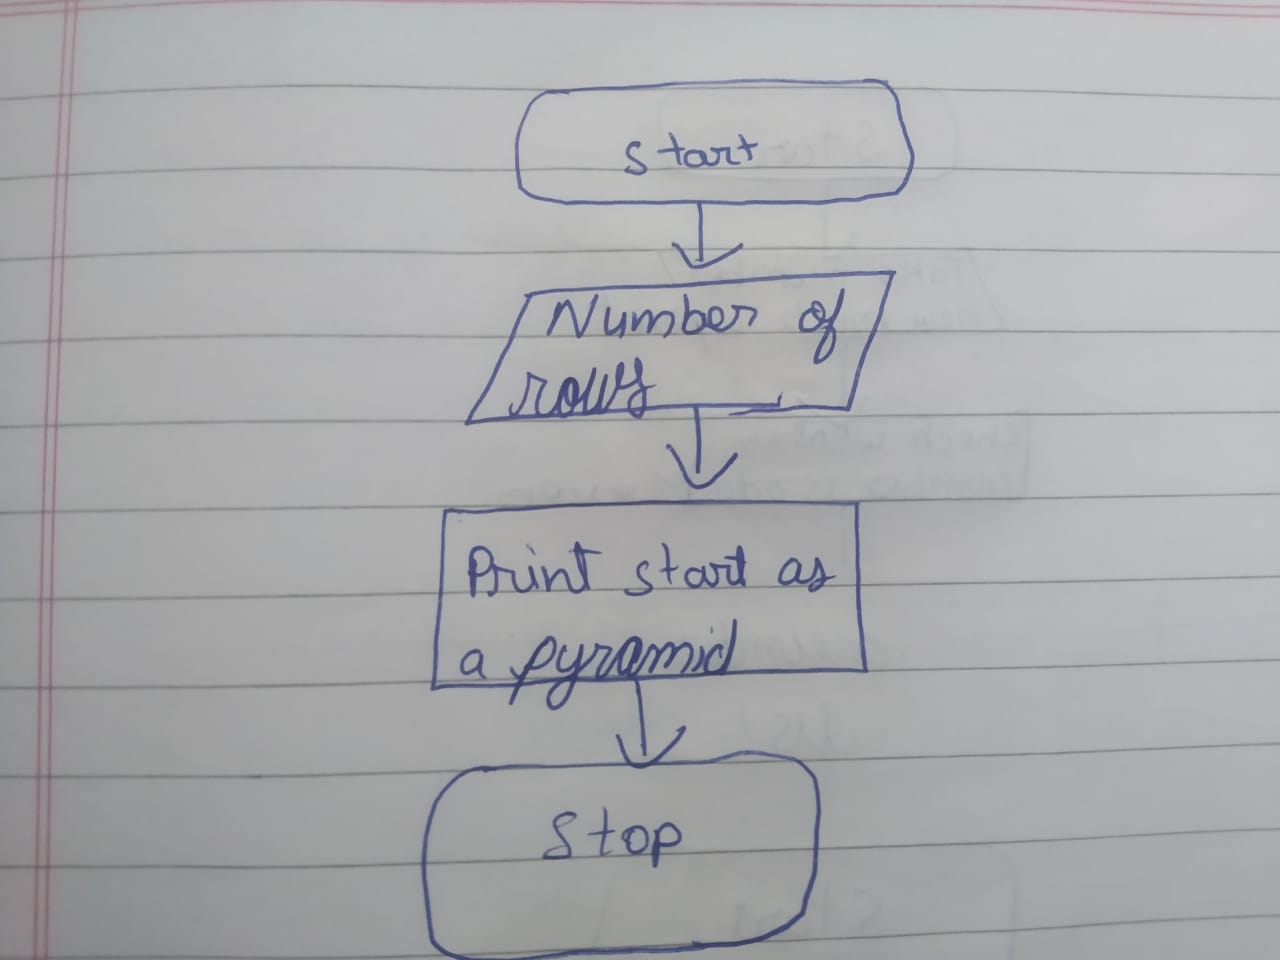 Start
Number of
rows
Print start as
a pyramid
Stop